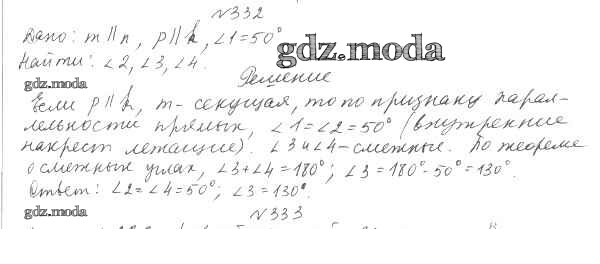 №332
Дано: m || n, p || k, ∠1=50°
gdz.moda
Найти: ∠2, ∠3, ∠4.
gdz.moda
Решение
Если p || k, m - секущая, то по признаку парал-
лельности прямых, ∠1=∠2=50° (внутренние
накрест лежащие). ∠3 и ∠4 - смежные. По теореме
о смежных углах, ∠3+∠4=180°; ∠3=180°-50°=130°.
Ответ: ∠2=∠4=50°; ∠3=130°.
gdz.moda
№333